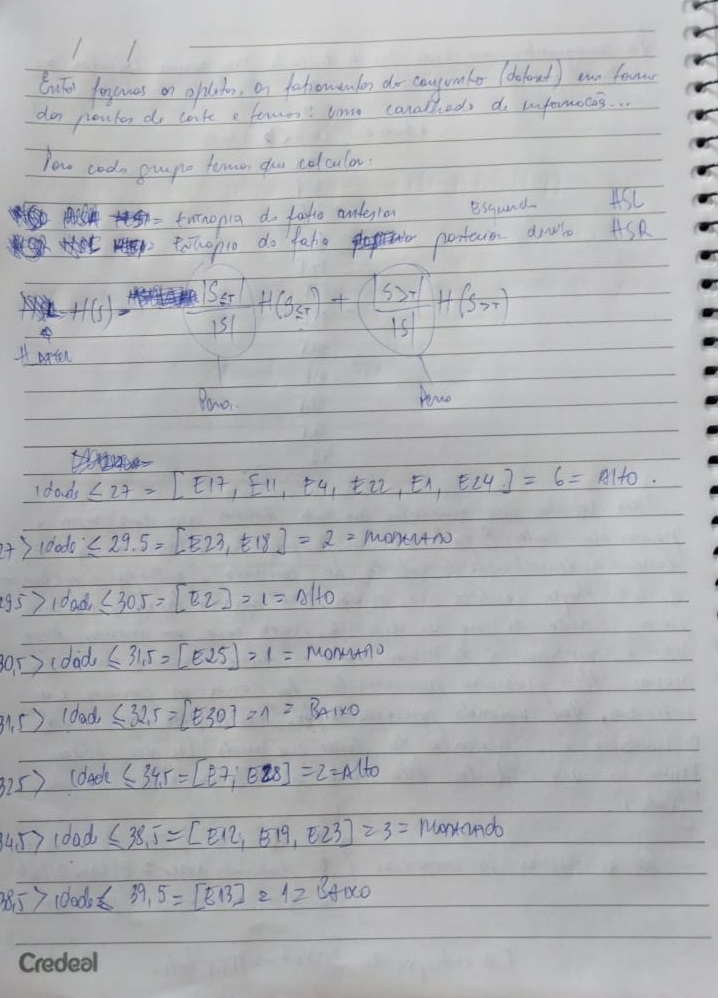 / /
Então fazemos os splits, os fatiamentos do conjunto (dataset) em torno
dos pontos de corte e temos: uma caralhada de informacoẽs...
Para cada grupo temos que calcular:
= Entropia da fatia anterior Esquerda HSL
= Entropia da fatia posterior direito HSR
H(s) = |S≤T| / |S| H(S≤T) + |S>T| / |S| H(S>T)
H AFTER
Peso. Peso
Idade ≤ 27 = [E17, E11, E4, E22, E1, E24] = 6 = Alto.
27 > Idade ≤ 29.5 = [E23, E18] = 2 = MODERADO
29,5 > Idade ≤ 30,5 = [E2] = 1 = Alto
30,5 > Idade ≤ 31,5 = [E25] = 1 = MODERADO
31,5 > Idade ≤ 32,5 = [E30] = 1 = BAIXO
32,5 > IDADE ≤ 34,5 = [E7, E28] = 2 = Alto
34,5 > Idade ≤ 38,5 = [E12, E19, E23] = 3 = MODERADO
38,5 > Idade ≤ 39,5 = [E13] = 1 = BAIXO
Credeal